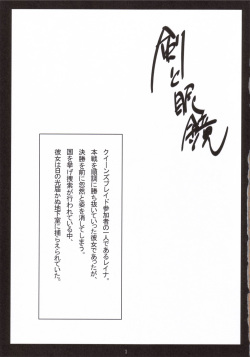 剣と眼鏡
クイーンズブレイド参加者の一人であるレイナ。
本戦を順調に勝ち抜いていった彼女であったが、
決勝を前に忽然と姿を消してしまう。
国を挙げ捜索が行われている中、
彼女は日の光届かぬ地下室に捕らえられていた。
1